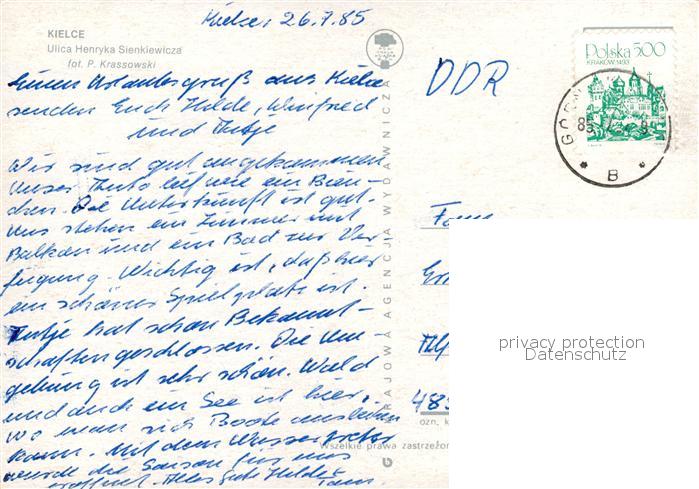 Kielce, 26.7.85
KIELCE
Ulica Henryka Sienkiewicza
fot. P. Krassowski
Einen Urlaubsgruß aus Kielce
senden Euch Hilde, Winfried
und Antje
Wir sind gut angekommen
unser Auto lief wie ein Bien-
chen. Die Unterkunft ist gut.
Uns stehen ein Zimmer mit
Balkon und ein Bad zur Ver-
fügung. Wichtig ist, daß hier
ein schöner Spielplatz ist.
Antje hat schon Bekannt-
schaften geschlossen. Die Um-
gebung ist sehr schön. Wald
und auch ein See ist hier,
wo man sich Boote ausleihen
kann. Mit dem Wassertreter
wurde die Saison für uns
eröffnet. Alles Gute Hilde +
Fam.
KRAJOWA AGENCJA WYDAWNICZA
DDR
Polska 5.00
KRAKÓW 1493
85
B
Fam
483
ozn. k
Wszelkie prawa zastrzeżon
privacy protection
Datenschutz